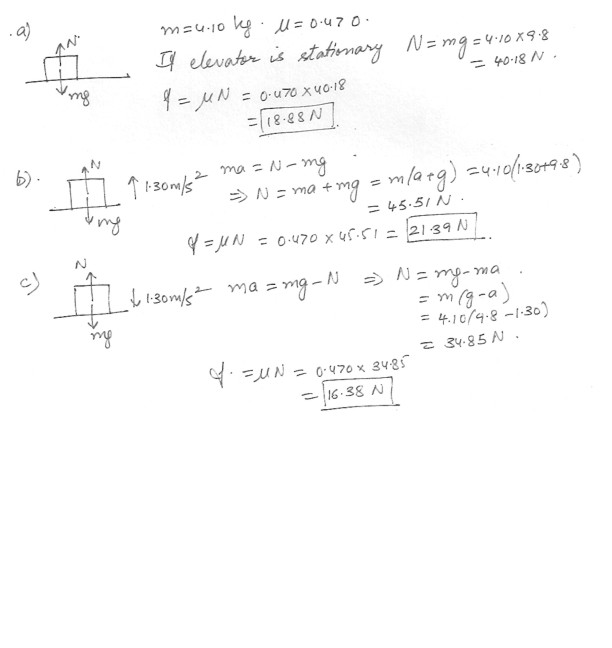 .a)
N.
mg
m=4.10 kg. μ=0.470.
If elevator is stationary N=mg=4.10×9.8
= 40.18 N.
f = μN = 0.470×40.18
= 18.88 N.
b).
N
mg
↑1.30m/s² ma = N-mg
⇒ N = ma+mg = m(a+g) = 4.10(1.30+9.8)
= 45.51 N.
f=μN = 0.470×45.51 = 21.39 N.
c)
N
mg
↓1.30m/s² ma = mg-N ⇒ N = mg-ma.
= m(g-a)
= 4.10(9.8-1.30)
= 34.85 N.
f. =μN = 0.470×34.85
= 16.38 N